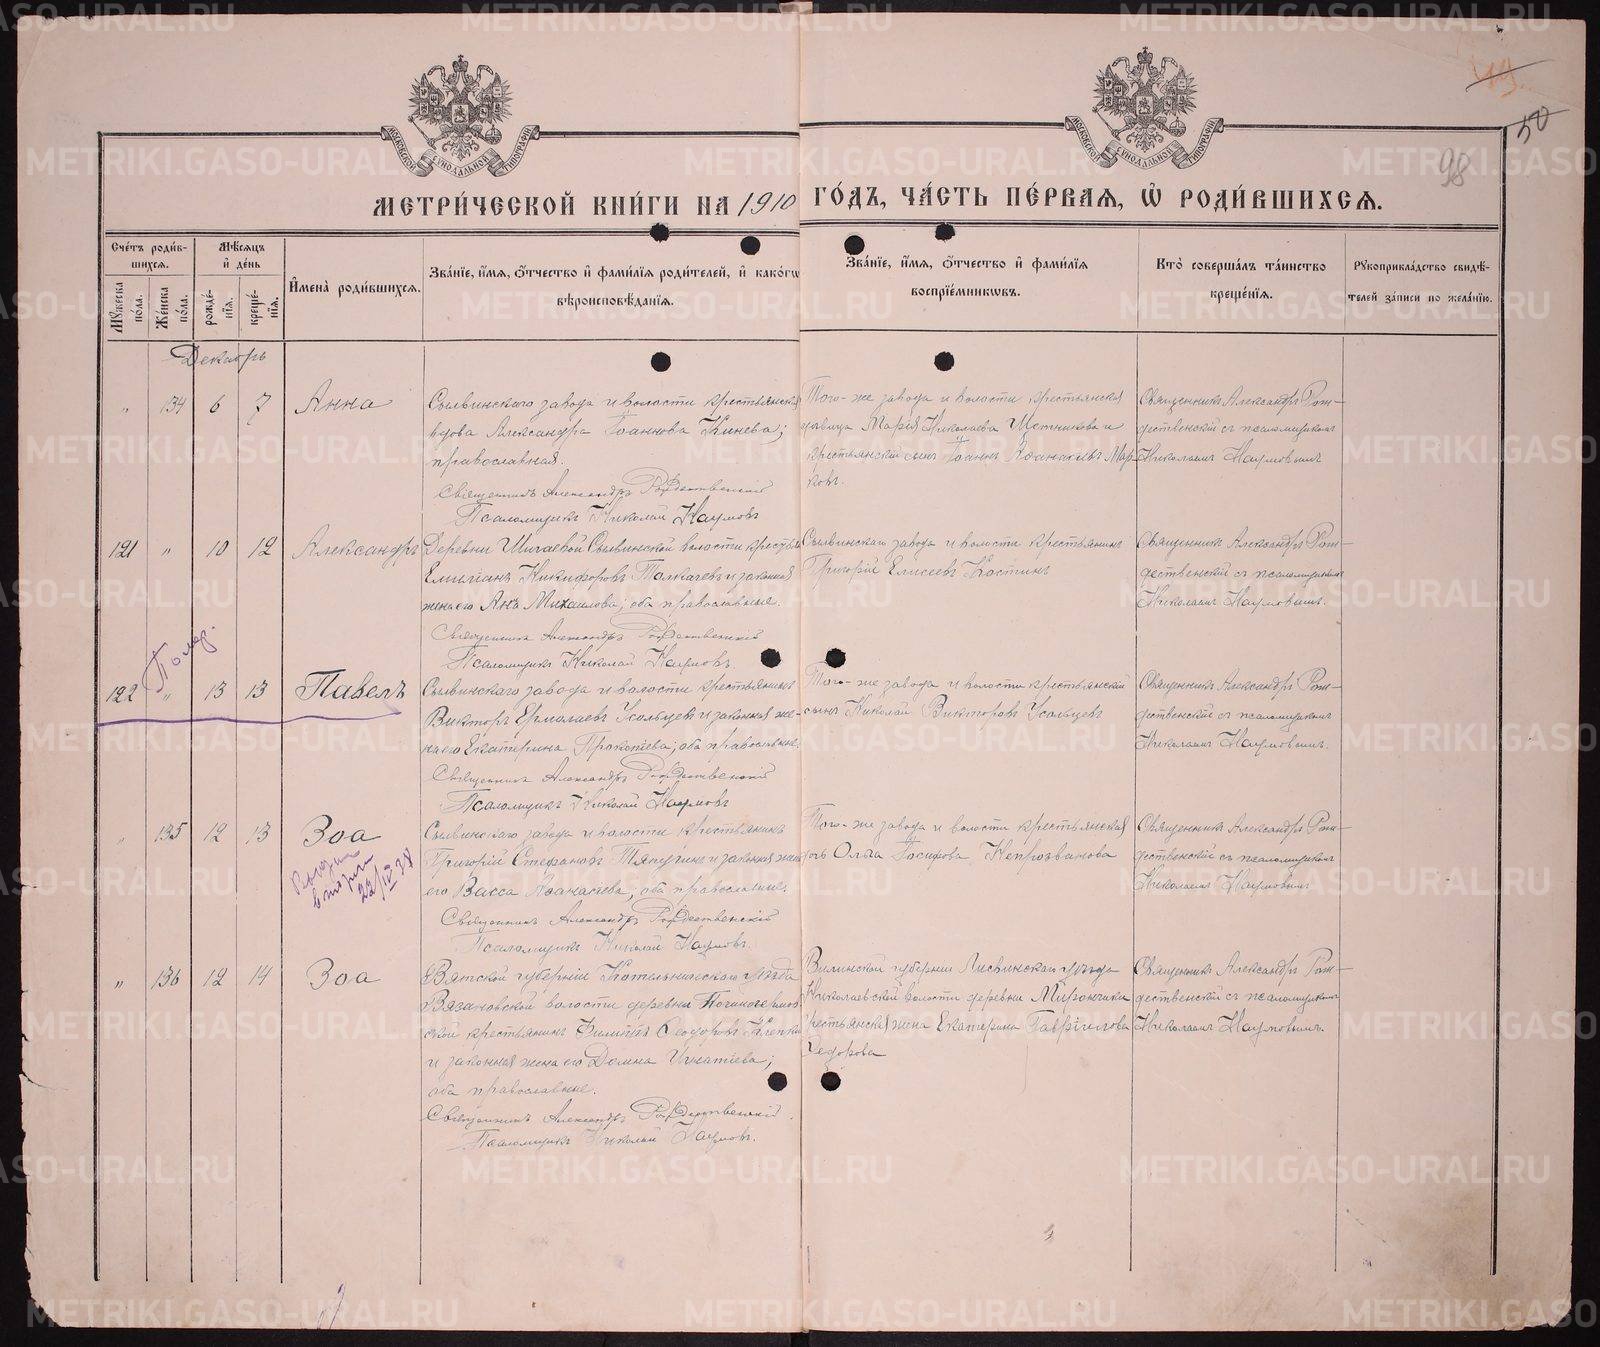 49
50
98
МОСКОВСКОЙ СУНОДАЛЬНОЙ ТИПОГРАФІИ
МОСКОВСКОЙ СУНОДАЛЬНОЙ ТИПОГРАФІИ
МЕТРИ́ЧЕСКОЙ КНИ́ГИ НА 1910 ГО́ДЪ, ЧА́СТЬ ПЕ́РВАѦ, Ѿ РОДИ́ВШИХСѦ.
Сче́тъ роди́в-
шихсѧ.
Мѣ́сѧцъ
и҆ де́нь
Мꙋ́жеска
по́ла.
Же́нска
по́ла.
рожде́-
нїѧ.
креще́-
нїѧ.
И҆мена̀ роди́вшихсѧ.
Зва́нїе, и҆́мѧ, ѻ҆́тчество и҆ фами́лїѧ роди́телей, и҆ како́гѡ
вѣроисповѣ́данїѧ.
Зва́нїе, и҆́мѧ, ѻ҆́тчество и҆ фами́лїѧ
воспрїе́мникѡвъ.
Кто̀ соверша́лъ та́инство
креще́нїѧ.
Рꙋкоприкла́дство свидѣ́-
телей за́писи по жела́нїю.
Декабрь
" 134 6 7 Анна
Сылвинскаго завода и волости крестьянская
вдова Александра Іоаннова Кинева;
православная.
Священникъ Александръ Рождественскій
Псаломщикъ Николай Наумовъ
Того-же завода и волости крестьянская
дѣвица Марія Николаева Щетникова и
крестьянскій сынъ Іоаннъ Аѳанасіевъ Мар-
ковъ.
Священникъ Александръ Рож-
дественскій съ псаломщикомъ
Николаемъ Наумовымъ
121 " 10 12 Александръ
Деревни Шигаевой Сылвинской волости крестьян.
Емиліанъ Никифоровъ Толкачевъ и законная
жена его Анна Михаилова; оба православные.
Священникъ Александръ Рождественскій
Псаломщикъ Николай Наумовъ
Сылвинскаго завода и волости крестьянинъ
Григорій Елисеевъ Костинъ
Священникъ Александръ Рож-
дественскій съ псаломщикомъ
Николаемъ Наумовымъ.
Помер.
122 " 13 13 Павелъ
Сылвинскаго завода и волости крестьянинъ
Викторъ Ермолаевъ Усольцевъ и законная же-
на его Екатерина Прокопіева; оба православные.
Священникъ Александръ Рождественскій
Псаломщикъ Николай Наумовъ
Того-же завода и волости крестьянскій
сынъ Николай Викторовъ Усольцевъ
Священникъ Александръ Рож-
дественскій съ псаломщикомъ
Николаемъ Наумовымъ.
" 135 12 13 Зоа
Выдан
вторич
22/IV 38
Сылвинскаго завода и волости крестьянинъ
Григорій Стефановъ Тяпугинъ и законная жена
его Васса Аѳанасіева; оба православные.
Священникъ Александръ Рождественскій
Псаломщикъ Николай Наумовъ.
Того-же завода и волости крестьянская
дочь Ольга Іосифова Непрозванова
Священникъ Александръ Рож-
дественскій съ псаломщикомъ
Николаемъ Наумовымъ
" 136 12 14 Зоа
Вятской губерніи Котельническаго уѣзда
волости деревни
крестьянинъ Филиппъ Ѳеодоровъ
и законная жена его Домна Игнатіева;
оба православные.
Священникъ Александръ Рождественскій.
Псаломщикъ Николай Наумовъ.
Виленской губерніи уѣзда
Николаевской волости деревни
крестьянская жена Екатерина Гавріилова
Ѳедорова
Священникъ Александръ Рож-
дественскій съ псаломщикомъ
Николаемъ Наумовымъ.
METRIKI.GASO-URAL.RU